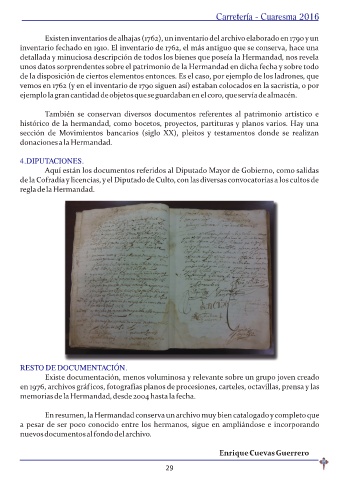 Carretería - Cuaresma 2016
Existen inventarios de alhajas (1762), un inventario del archivo elaborado en 1790 y un
inventario fechado en 1910. El inventario de 1762, el más antiguo que se conserva, hace una
detallada y minuciosa descripción de todos los bienes que poseía la Hermandad, nos revela
unos datos sorprendentes sobre el patrimonio de la Hermandad en dicha fecha y sobre todo
de la disposición de ciertos elementos entonces. Es el caso, por ejemplo de los ladrones, que
vemos en 1762 (y en el inventario de 1790 siguen así) estaban colocados en la sacristía, o por
ejemplo la gran cantidad de objetos que se guardaban en el coro, que servía de almacén.
También se conservan diversos documentos referentes al patrimonio artístico e
histórico de la hermandad, como bocetos, proyectos, partituras y planos varios. Hay una
sección de Movimientos bancarios (siglo XX), pleitos y testamentos donde se realizan
donaciones a la Hermandad.
4.DIPUTACIONES.
Aquí están los documentos referidos al Diputado Mayor de Gobierno, como salidas
de la Cofradía y licencias, y el Diputado de Culto, con las diversas convocatorias a los cultos de
regla de la Hermandad.
RESTO DE DOCUMENTACIÓN.
Existe documentación, menos voluminosa y relevante sobre un grupo joven creado
en 1976, archivos gráficos, fotografías planos de procesiones, carteles, octavillas, prensa y las
memorias de la Hermandad, desde 2004 hasta la fecha.
En resumen, la Hermandad conserva un archivo muy bien catalogado y completo que
a pesar de ser poco conocido entre los hermanos, sigue en ampliándose e incorporando
nuevos documentos al fondo del archivo.
Enrique Cuevas Guerrero
29